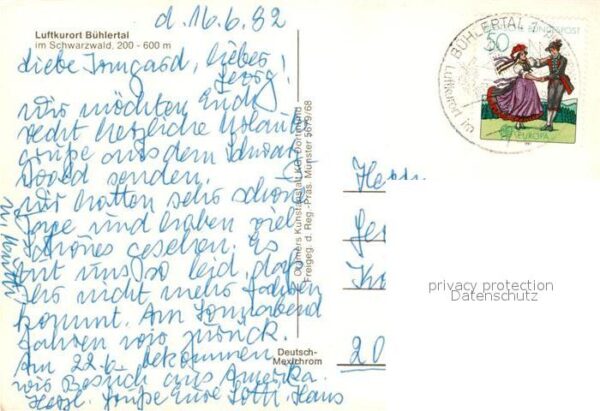 d. 16.6.82
Luftkurort Bühlertal
im Schwarzwald, 200 - 600 m
Liebe Irmgard, lieber
Georg!
Wir möchten Euch
recht herzliche Urlaubs
grüße aus dem Schwarz
wald senden.
Wir hatten sehr schöne
Tage und haben viel
schönes gesehen. Es
tut uns so leid, daß
Ihr nicht mehr fahren
kommt. Am Sonnabend
fahren wir zurück.
Am 22.6. bekommen
wir Besuch aus Amerika.
Herzl. Grüße Eure Lotti, Hans
Cramers Kunstanstalt KG, Dortmund
Freigeg. d. Reg.-Präs. Münster 5679/68
Deutsch-
Mexichrom
BÜHLERTAL
Luftkurort im
DEUTSCHE BUNDESPOST
50
EUROPA
Herrn
Ge
20
privacy protection
Datenschutz